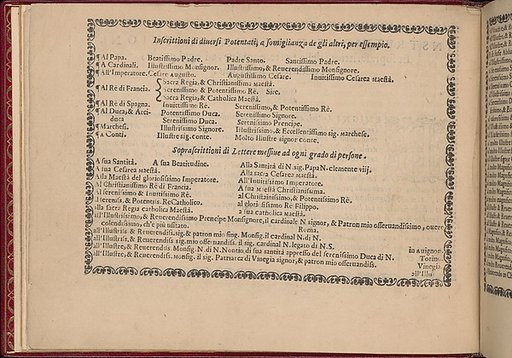 Inscrittioni di diuersi Potentati, a somiglianza de gli altri, per essempio.
¶ Al Papa. Beatissimo Padre. Padre Santo. Santissimo Padre.
¶ A Cardinali. Illustrissimo Monsignor. Illustrissimo, & Reuerendissimo Monsignore.
¶ All'Imperatore. Cesare Augusto. Augustissimo Cesare. Inuittissimo Cesarea Maestà.
Sacra Regia, & Christianissima Maestà.
¶ Al Rè di Francia. Serenissimo & Potentissimo Rè. Sire.
Sacra Regia, & Catholica Maestà.
¶ Al Rè di Spagna. Inuittissimo Rè. Serenissimo, & Potentissimo Rè.
¶ Al Duca, & Arci- Potentissimo Duca. Serenissimo Signore.
duca Serenissimo Duca. Serenissimo Prencipe.
¶ Marchesi. Illustrissimo Signore. Illustrissimo, & Eccellentissimo sig. marchese.
¶ a Conti. Illustre sig. conte. Molto Illustre signor conte.
Soprascrittioni di Lettere messiue ad ogni grado di persone.
A sua Santità. A sua Beatitudine. Alla Santità di N. sig. Papa N. clemente viij.
A sua Cesarea maestà. Alla sacra Cesarea Maestà.
Alla Maestà del gloriosissimo Imperatore. All'Inuittissimo Imperatore.
Al Christianissimo Rè di Francia. A sua Maestà Christianissima.
Al serenissimo & Inuittissimo Rè. al Christianissimo, & Potentissimo Rè.
Al sereniss. & Potentiss. Re Catholico. al gloriosissimo Rè Filippo.
alla sacra Regia catholica Maestà. a sua catholica Maestà.
all'Illustrissimo, & Reuerendissimo Prencipe Monsignore, il cardinale N. signor, & Patron mio osseruandissimo, ouere
colendissimo, ch'è più usitato. Roma.
all'Illustriss. & Reuerendiss. sig. & patron mio sing. Monsig. il cardinal N. di N.
all'Illustriss, & Reuerendiss sig. mio osseruandiss. il sig. cardinal N. legato di N.S. in auignon.
all'Illustre, & Reuerendiss. Monsig. N. di N. Nontio di sua santità appresso del serenissimo Duca di N. Torin.
all'Illustre, & Reuerendiss. Monsig. il sig. Patriarca di Vinegia signor, & patron mio osseruandiss. Vinegia
all'Illu